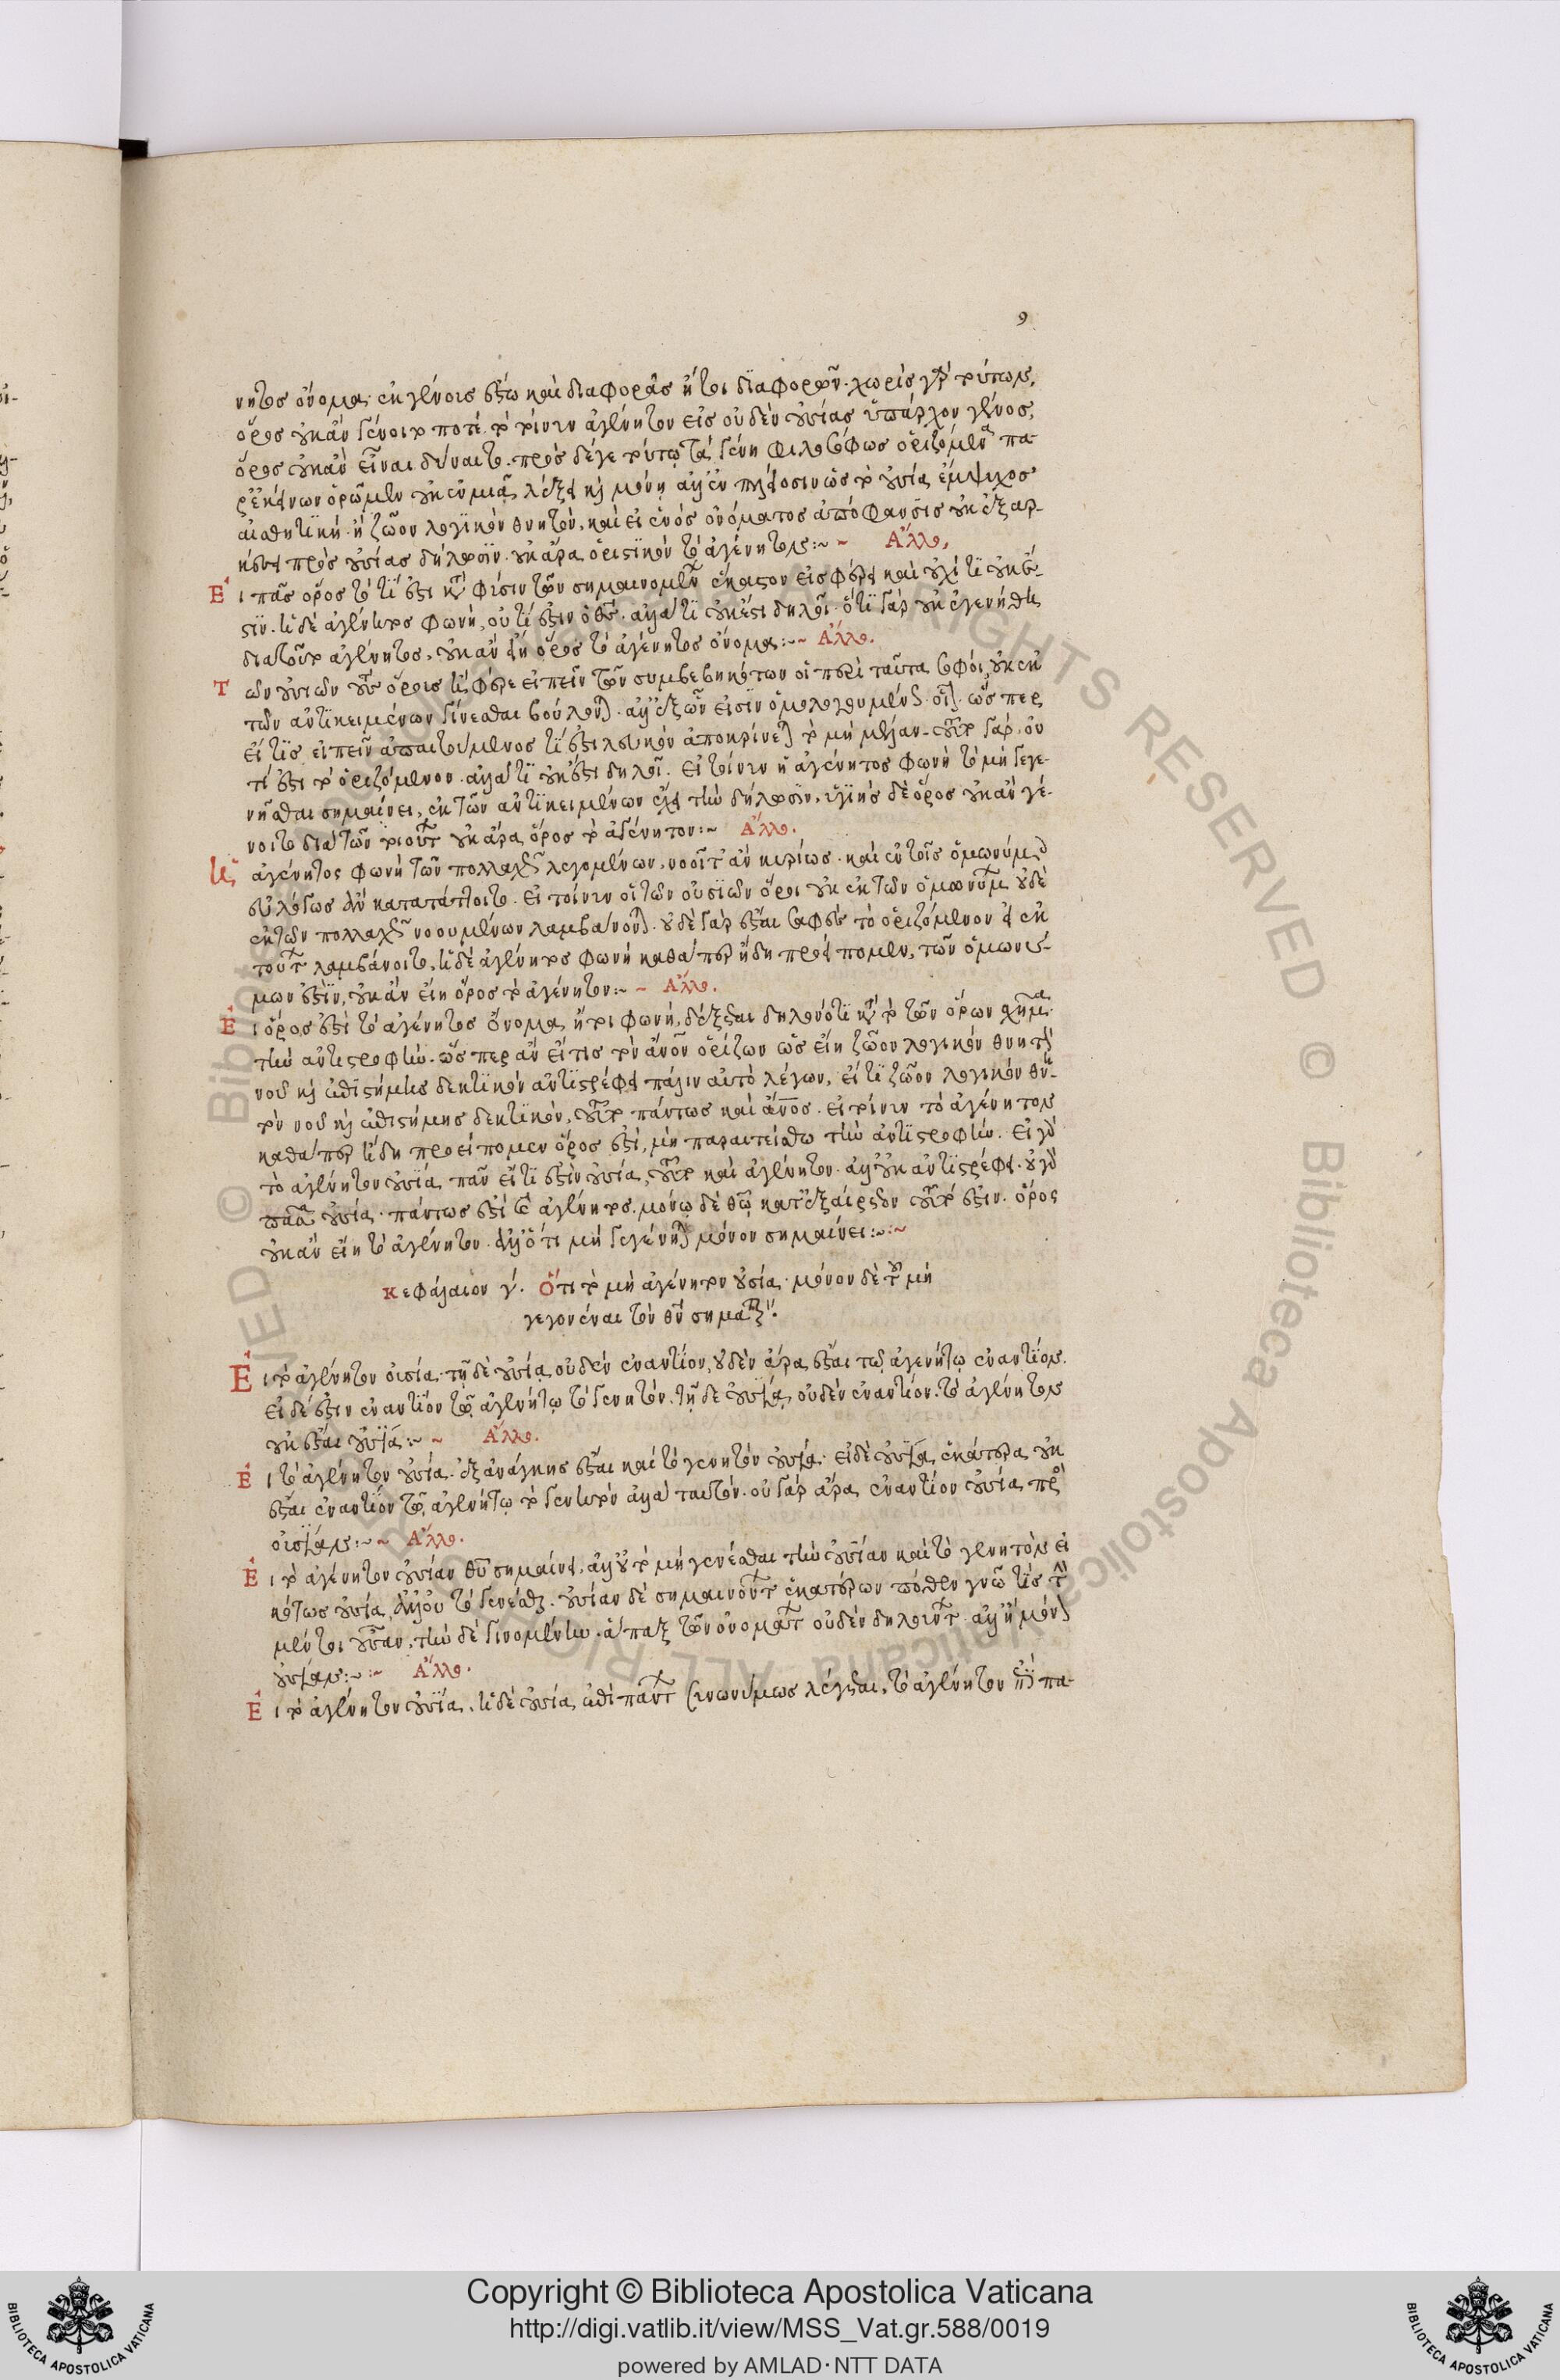 9
νητος ὄνομα ἐκ γένους ἔσται καὶ διαφορᾶς ἤτοι διαφορῶν. χωρὶς γὰρ τούτων,
ὅρος οὐκ ἂν γένοιτο ποτέ. τὸ τοίνυν ἀγένητον εἰς οὐδὲν οὐσίας ὑπάρχον γένος,
ὅρος οὐκ ἂν εἶναι δύναιτο. πρὸς δέ γε τούτῳ τὰ γένη φιλοσόφως ὁριζόμενα πα-
ρ' ἐκείνων ὁρῶμεν οὐκ ἐν μιᾷ λέξει καὶ μόνῃ ἀλλ' ἐν πλείοσιν ὡς τὸ οὐσία ἔμψυχος
αἰσθητικὴ ἢ ζῶον λογικὸν θνητόν, καὶ εἰ ἑνὸς ὀνόματος ἀπόφανσις οὐκ ἐξαρ-
κέσει πρὸς οὐσίας δήλωσιν. οὐκ ἄρα ὁριστικὸν τὸ ἀγένητον:~ Ἄλλο,
Εἰ πᾶς ὅρος τὸ τί ἐστι κατὰ φύσιν τῶν σημαινομένων ἕκαστον εἰσφέρει καὶ οὐχὶ τί οὐκ ἔ-
στιν. ἡ δὲ ἀγένητος φωνή, οὐ τί ἐστιν ὁ θεός. ἀλλὰ τί οὐκ ἔστι δηλοῖ. ὅτι γὰρ οὐκ ἐγενήθη
διατοῦτο ἀγένητος, οὐκ ἂν εἴη ὅρος τὸ ἀγένητος ὄνομα:~ Ἄλλο.
Τῶν οὐσιῶν τοὺς ὅρους ἢ, φέρε εἰπεῖν τῶν συμβεβηκότων οἱ περὶ ταῦτα σοφοί, οὐκ ἐκ
τῶν ἀντικειμένων γίνεσθαι βούλονται. ἀλλ' ἐξ ὧν εἰσὶν ὁμολογουμένως. ὥσπερ
εἴ τις εἰπεῖν ἀπαιτούμενος τί ἐστι λευκὸν ἀποκρίνεται τὸ μὴ μέλαν. τοῦτο γὰρ, οὐ
τί ἐστι τὸ ὁριζόμενον. ἀλλὰ τί οὐκ ἔστι δηλοῖ. Εἰ τοίνυν ἡ ἀγένητος φωνὴ τὸ μὴ γεγε-
νῆσθαι σημαίνει, ἐκ τῶν ἀντικειμένων ἔχει τὴν δήλωσιν, ὑγιὴς δὲ ὅρος οὐκ ἂν γέ-
νοιτο διὰ τῶν τοιούτων οὐκ ἄρα ὅρος τὸ ἀγένητον:~ Ἄλλο.
Ἡ ἀγένητος φωνὴ τῶν πολλαχῶς λεγομένων, νοοῖτ' ἂν κυρίως. καὶ ἐν τοῖς ὁμωνύμοις
εὐλόγως ἂν κατατάττοιτο. Εἰ τοίνυν οἱ τῶν οὐσιῶν ὅροι οὐκ ἐκ τῶν ὁμωνύμων οὐδὲ
ἐκ τῶν πολλαχῶς νοουμένων λαμβάνονται. οὐδὲ γὰρ ἔσται σαφὲς τὸ ὁριζόμενον εἰ ἐκ
τούτων λαμβάνοιτο, ἡ δὲ ἀγένητος φωνὴ καθάπερ ἤδη προείπομεν, τῶν ὁμωνύ-
μων ἐστίν, οὐκ ἂν εἴη ὅρος τὸ ἀγένητον:~ Ἄλλο.
Εἰ ὅρος ἐστὶ τὸ ἀγένητος ὄνομα ἤτοι φωνή, δέξεται δηλονότι κατὰ τὸ τῶν ὅρων σχῆμα
τὴν ἀντιστροφήν. ὥσπερ ἂν εἴ τις τὸν ἄνον ὁρίζων ὡς εἴη ζῶον λογικὸν θνητὸν
νοῦ καὶ ἐπιστήμης δεκτικὸν ἀντιστρέφει πάλιν αὐτὸ λέγων, εἴ τι ζῶον λογικὸν θνη-
τὸν νοῦ καὶ ἐπιστήμης δεκτικόν, τοῦτο πάντως καὶ ἄνος. εἰ τοίνυν τὸ ἀγένητον
καθάπερ ἤδη προείπομεν ὅρος ἐστί, μὴ παραιτείσθω τὴν ἀντιστροφήν. Εἰ γὰρ
τὸ ἀγένητον οὐσία, πᾶν εἴ τι ἐστὶν οὐσία, τοῦτο καὶ ἀγένητον. ἀλλ' οὐκ ἀντιστρέφει. οὐ γὰρ
πᾶσα οὐσία πάντως ἐστὶ καὶ ἀγένητος. μόνῳ δὲ θεῷ κατ' ἐξαίρετον τοῦτό ἐστιν. ὅρος
οὐκ ἂν εἴη τὸ ἀγένητον. ἀλλ' ὅτι μὴ γεγένηται μόνον σημαίνει:~
Κεφάλαιον γ΄. Ὅτι τὸ μὴ ἀγένητον οὐσία. μόνον δὲ τὸ μὴ
γεγονέναι τὸν θν σημαίνει.
Εἰ τὸ ἀγένητον οὐσία. τῇ δὲ οὐσίᾳ οὐδὲν ἐναντίον, οὐδὲν ἄρα ἔσται τῷ ἀγενήτῳ ἐναντίον.
εἰ δέ ἐστιν ἐναντίον τῷ ἀγενήτῳ τὸ γενητόν. τῇ δὲ οὐσίᾳ οὐδὲν ἐναντίον. τὸ ἀγένητον
οὐκ ἔσται οὐσία:~ Ἄλλο.
Εἰ τὸ ἀγένητον οὐσία. ἐξ ἀνάγκης ἔσται καὶ τὸ γενητὸν οὐσία. εἰ δὲ οὐσία ἑκάτερα οὐκ
ἔσται ἐναντίον τῷ ἀγενήτῳ τὸ γενητὸν ἀλλὰ ταυτόν. οὐ γὰρ ἄρα ἐναντίον οὐσία πρὸς
οὐσίαν:~ Ἄλλο.
Εἰ τὸ ἀγένητον οὐσίαν θυ σημαίνει, ἀλλ' οὐ τὸ μὴ γενέσθαι τὴν οὐσίαν καὶ τὸ γενητὸν εἰ
κότως οὐσία, ἀλλ' οὐ τὸ γενέσθαι. οὐσίαν δὲ σημαινόντων ἑκατέρων πόθεν γνῶ τις τὴν
μὲν τοι οὖσαν, τὴν δὲ γινομένην. ἅπαξ τῶν ὀνομάτων οὐδὲν δηλούντων ἀλλ' ἢ μόνον
οὐσίαν:~ Ἄλλο.
Εἰ τὸ ἀγένητον οὐσία, ἡ δὲ οὐσία ἐπὶ πάντων συνωνύμως λέγεται, τὸ ἀγένητον ἐπὶ πα-
Copyright © Biblioteca Apostolica Vaticana
http://digi.vatlib.it/view/MSS_Vat.gr.588/0019
powered by AMLAD·NTT DATA